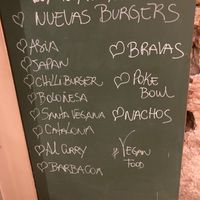 NUEVAS BURGERS
ASIA
JAPAN
CHILLI BURGER
BOLOÑESA
SANTA VEGANA
CATALONA
AL CURRY
BARBACOA
BRAVAS
POKE
BOWL
NACHOS
#VEGAN
FOOD